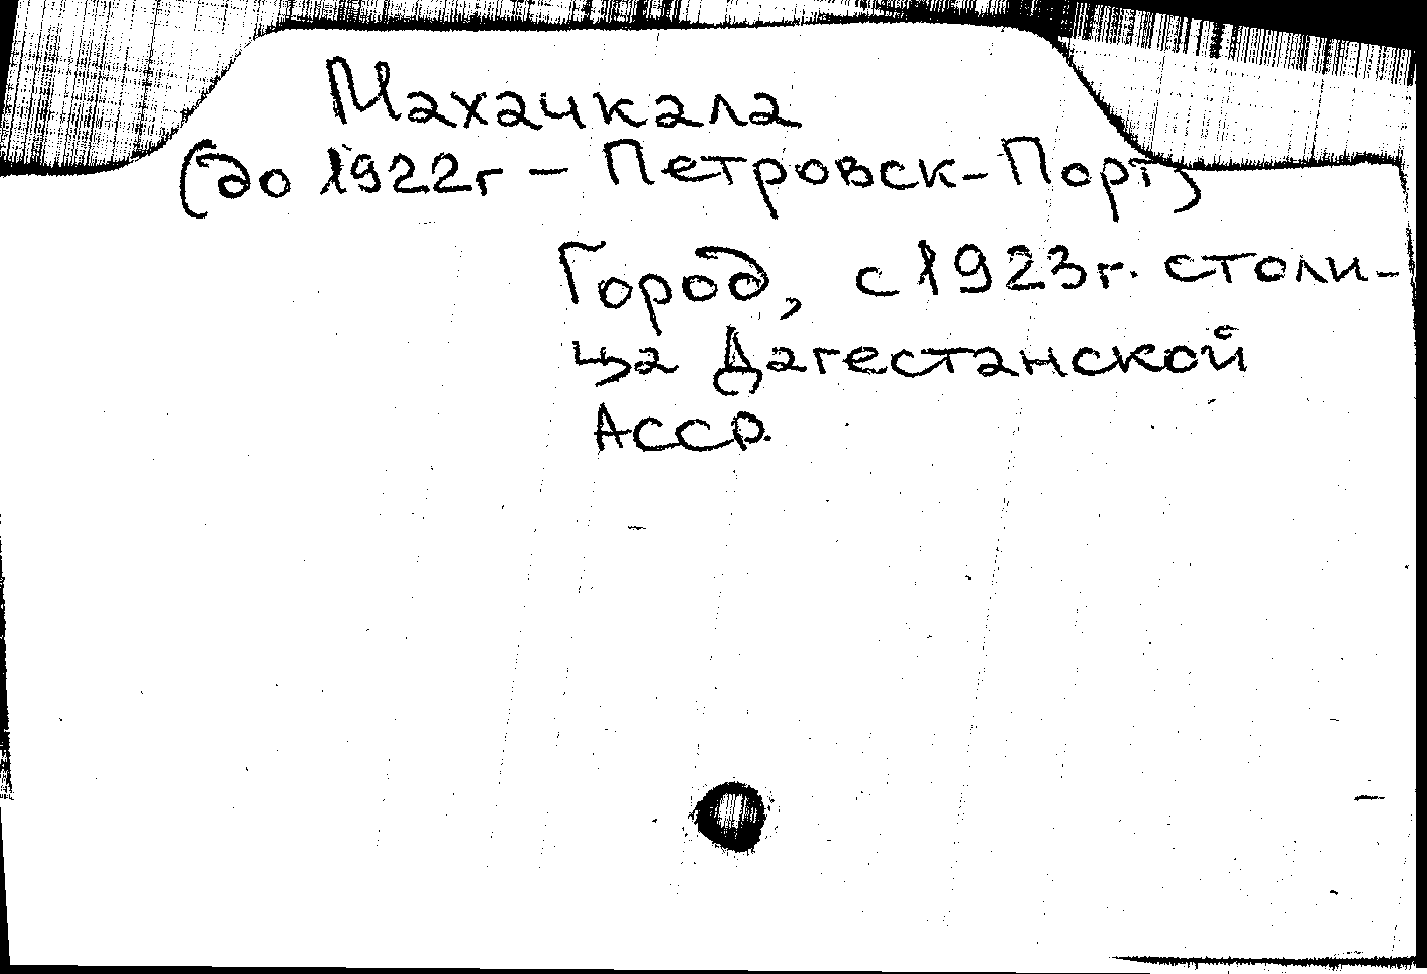 Махачкала
(до 1922г – Петровск-Порт)
Город, с 1923г. столи-
ца Дагестанской
АССР.